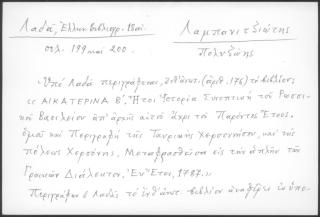 Λαδᾶ, Ἑλλην. βιβλιογρ. 18 αἰ.
σελ. 199 καὶ 200.
Λαμπανιτζιώτης
Πολυζώης
"Ὑπὸ Λαδᾶ περιγράφεται, (ἀριθ. 176) τὸ βιβλίον
"ΑΙΚΑΤΕΡΙΝΑ Β΄. Ἤτοι Ἱστορία Συνοπτικὴ τοῦ Ρωσσι-
κοῦ Βασιλείου ἀπ' ἀρχῆς αὐτοῦ ἄχρι τοῦ Παρόντος Ἔτους.
ὁμοῦ καὶ Περιγραφὴ τῆς Ταυρικῆς Χερσονήσου, καὶ τῆς
πόλεως Χερσόνης. Μεταφρασθεῖσα εἰς τὴν ἁπλῆν τῶν
Γραικῶν Διάλεκτον. Ἐν Ἔτει, 1787."
Περιγράφων ὁ Λαδᾶς τὸ βιβλίον ἀναφέρει ἐν ὑπο-